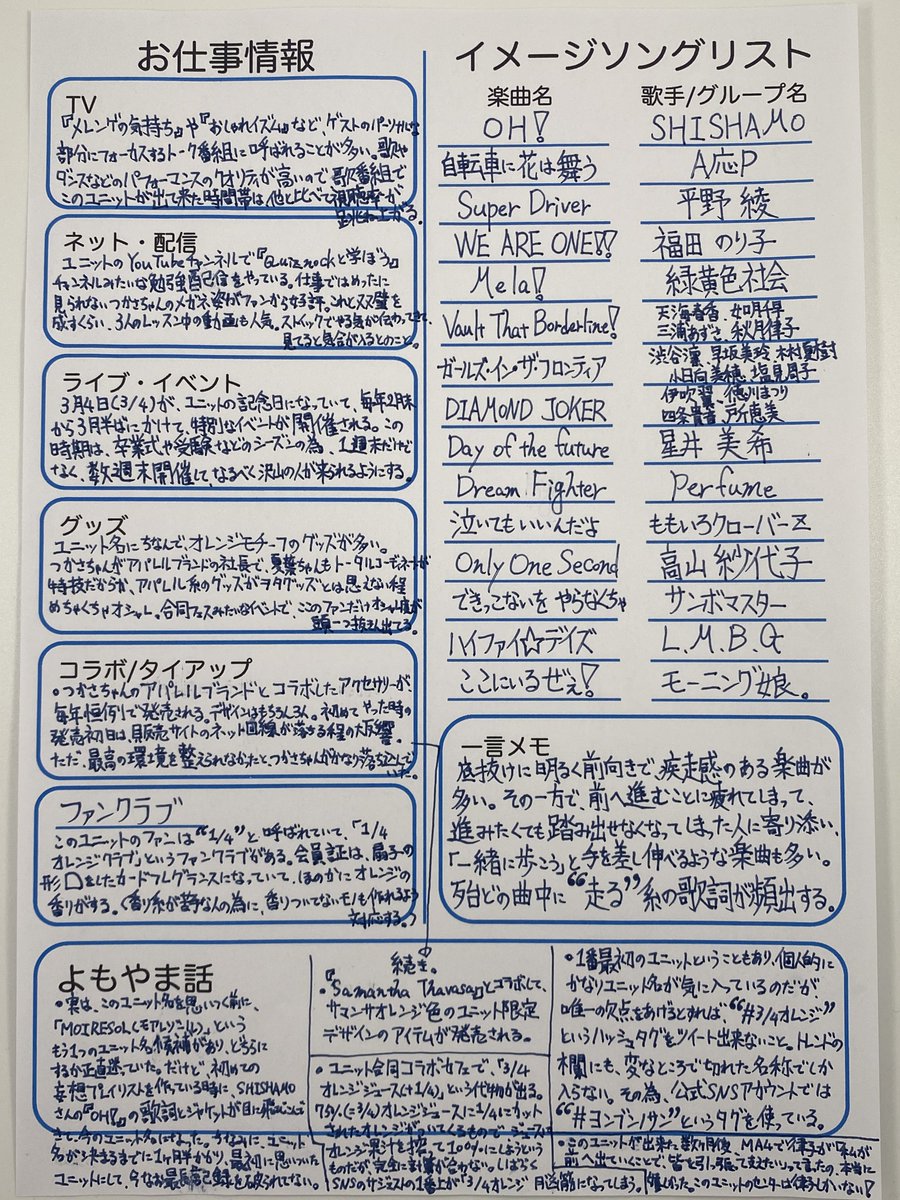 お仕事情報
TV
『メレンゲの気持ち』や『おしゃれイズム』など、ゲストのパーソナルな
部分にフォーカスするトーク番組に呼ばれることが多い。歌や
ダンスなどのパフォーマンスのクオリティが高いので、歌番組で
このユニットが出て来た時間帯は他と比べて視聴率が
跳ね上がる。
ネット・配信
ユニットのYouTubeチャンネルで『Quiz knockと学ぼう』
チャンネルみたいな勉強配信をやっている。仕事ではめったに
見られないつかさちゃんのメガネ姿がファンから好評。これと双璧を
成すくらい、3人のレッスン中の動画も人気。ストイックでやる気が伝わってきて、
見てると気合が入るとのこと。
ライブ・イベント
3月4日(3/4)が、ユニットの記念日になっていて、毎年2月末
から3月半ばにかけて、特別なイベントが開催される。この
時期は、卒業式や受験などのシーズンの為、1週末だけで
なく、数週末開催して、なるべく沢山の人が来られるようにする。
グッズ
ユニット名にちなんで、オレンジモチーフのグッズが多い。
つかさちゃんがアパレルブランドの社長で、夏葉ちゃんもトータルコーディネートが
特技だからか、アパレル系のグッズがヲタグッズとは思えない程
めちゃくちゃオシャレ。合同フェスみたいなイベントで、このファンだけオシャレ度が
頭一つ抜きん出てる。
コラボ/タイアップ
・つかさちゃんのアパレルブランドとコラボしたアクセサリーが、
毎年恒例で発売される。デザインはもちろん3人。初めてやった時の
発売初日は、販売サイトのネット回線が落ちる程の大反響。
ただ、最高の環境を整えられなかったと、つかさちゃんがかなり落ち込んで
いた。
ファンクラブ
このユニットのファンは"1/4"と呼ばれていて、「1/4
オレンジクラブ」というファンクラブがある。会員証は、扇子の
形をしたカードフレグランスになっていて、ほのかにオレンジの
香りがする。(香り系が苦手な人の為に、香りついてないモノも作れるよう
対応する。)
イメージソングリスト
楽曲名 歌手/グループ名
OH! SHISHAMO
自転車に花は舞う A応P
Super Driver 平野 綾
WE ARE ONE!! 福田 のり子
Mela! 緑黄色社会
Vault That Borderline! 天海春香、如月千早、三浦あずさ、秋月律子
ガールズ・イン・ザ・フロンティア 渋谷凛、早坂美玲、木村夏樹、小日向美穂、塩見周子
DIAMOND JOKER 伊吹翼、徳川まつり、四条貴音、所恵美
Day of the future 星井 美希
Dream Fighter Perfume
泣いてもいいんだよ ももいろクローバーZ
Only One Second 高山紗代子
できっこないを やらなくちゃ サンボマスター
ハイファイ☆デイズ L.M.B.G
ここにいるぜぇ! モーニング娘。
一言メモ
底抜けに明るく前向きで、疾走感のある楽曲が
多い。その一方で、前へ進むことに疲れてしまって、
進みたくても踏み出せなくなってしまった人に寄り添い、
「一緒に歩こう」と手を差し伸べるような楽曲も多い。
殆どの曲中に"走る"系の歌詞が頻出する。
よもやま話
・実は、このユニット名を思いつく前に、
「MOIRESOL(モアレソル)」という
もう1つのユニット名候補があり、どちらに
するか正直迷っていた。だけど、初めての
妄想プレイリストを作っている時に、SHISHAMO
さんの『OH!』の歌詞とジャケットが目に飛びこんで
きて、今のユニット名になった。ちなみに、ユニット
名が決まるまでに1ヶ月半かかり、最初に思いついた
ユニットにして、今なお最長記録を破られてない。
続き。
・『Samantha Thavasa』とコラボして、
サマンサオレンジ色のユニット限定
デザインのアイテムが発売される。
・ユニット合同コラボカフェで、「3/4
オレンジジュース(+1/4)」という代物が出る。
75%(=3/4)オレンジジュースに1/4にカット
されたオレンジがついてくるもので、ジュースに
オレンジ果汁を搾って100%にしようという
ものだが、完全に計算が合わない。しばらく
SNSのサジェストの1番上が「3/4オレンジ 月
・1番最初のユニットということもあり、個人的に
かなりユニット名が気に入っているのだが、
唯一の欠点をあげるとすれば、"#3/4オレンジ"
というハッシュタグをツイート出来ないこと。トレンドの
欄にも、変なところで切れた名称でしか
入らない。その為、公式SNSアカウントでは
"#ヨンブンノサン"というタグを使っている。
・このユニットが出来た数カ月後、MA4で律子が「私が
前へ出ていくことで、皆を引っ張ってきたいって言ってたの、本当に